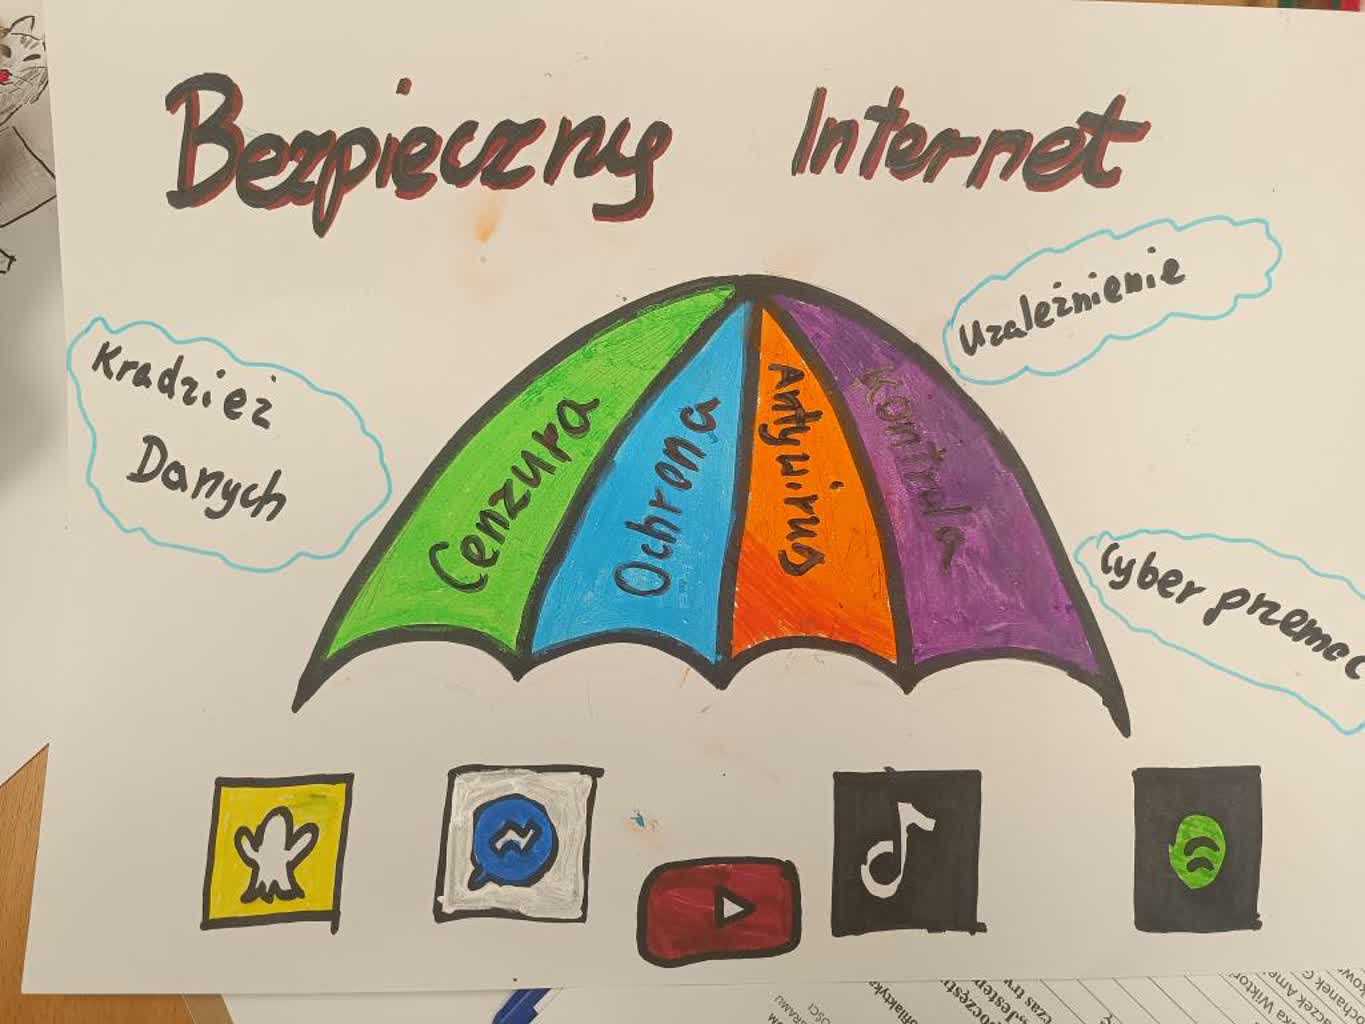 Bezpięczny Internet
Uzależnienie
Kradzież
Danych
Cenzura
Ochrona
Antywirus
Kontrola
Cyber przemoc
czas trw